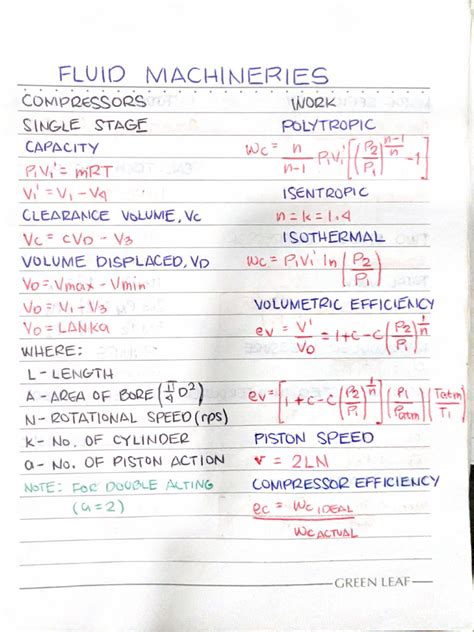 FLUID MACHINERIES
COMPRESSORS
SINGLE STAGE
CAPACITY
P₁V₁' = mRT
V₁' = V₁ - V₄
CLEARANCE VOLUME, Vc
Vc = cVD - V₃
VOLUME DISPLACED, VD
VD = Vmax - Vmin
VD = V₁ - V₃
VD = LANka
WHERE:
L - LENGTH
A - AREA OF BORE (π/4 D²)
N - ROTATIONAL SPEED (rps)
k - NO. OF CYLINDER
a - NO. OF PISTON ACTION
NOTE: FOR DOUBLE ALTING
(a = 2)
WORK
POLYTROPIC
Wc = n/n-1 P₁V₁' [(P₂/P₁)^(n-1/n) - 1]
ISENTROPIC
n = k = 1.4
ISOTHERMAL
Wc = P₁V₁' ln (P₂/P₁)
VOLUMETRIC EFFICIENCY
ev = V₁'/VD = 1 + c - c (P₂/P₁)^(1/n)
ev = [1 + c - c (P₂/P₁)^(1/n)] (P₁/Patm) (Tatm/T₁)
PISTON SPEED
v = 2LN
COMPRESSOR EFFICIENCY
ec = Wc IDEAL / Wc ACTUAL
GREEN LEAF